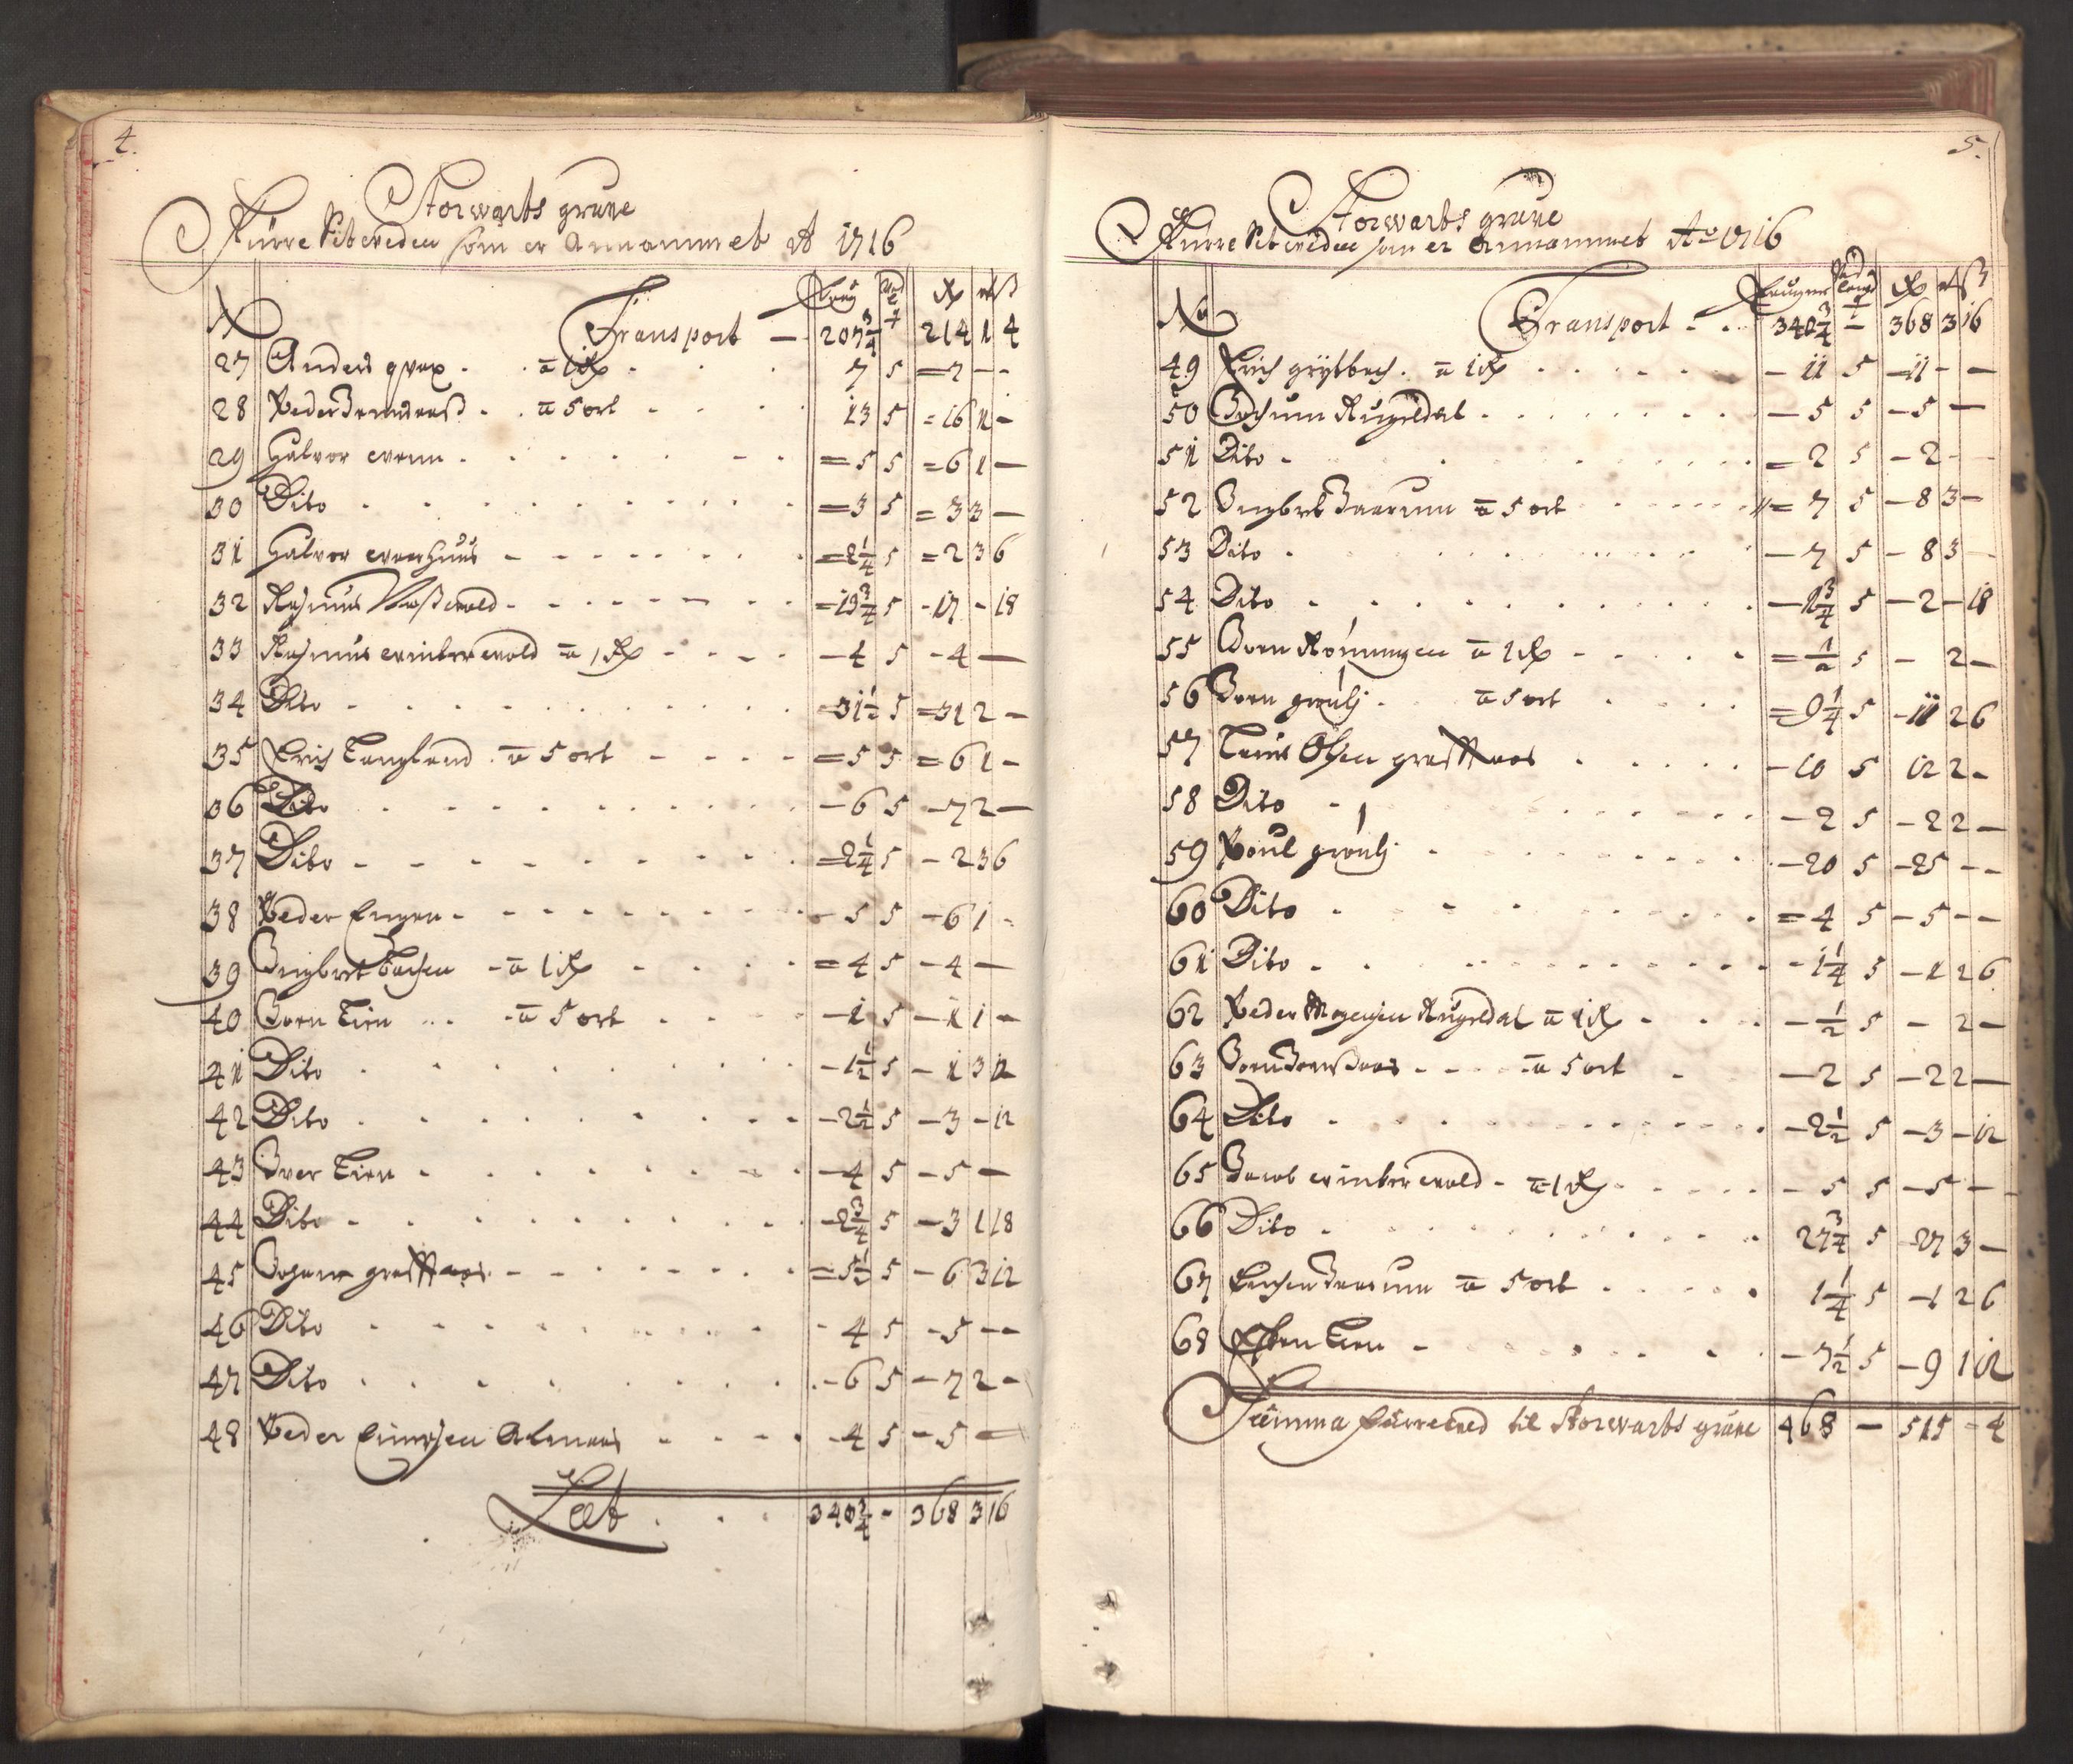 4.
Storwarts grue
Kurre Sitereden som er Annammet Ao 1716
No Transport — 207 3/4 214 1 4
27 Anders qvax . . a 1 Rd . . . 7 5 = 7 - -
28 Peder . . a 5 ort . . . 13 5 = 16 1 -
29 Halvor . . . . = 5 5 = 6 1 —
30 Dito . . . . = 3 5 = 3 3 —
31 Halvor . . . . = 2 1/4 5 = 2 3 6
32 Rasmus . . . . = 13 3/4 5 - 17 - 18
33 Rasmus winterwold a 1 Rd - - - - 4 5 - 4 —
34 Dito . . . . = 31 1/2 5 = 31 2 -
35 Erich Langland . a 5 ort - - - = 5 5 = 6 1 -
36 Dito . . . . - 6 5 - 7 2 —
37 Dito - - - - = 2 1/4 5 - 2 3 6
38 Peder Engen - - - - 5 5 - 6 1 -
39 Ingbret - a 1 Rd - - - = 4 5 - 4 —
40 Joen Lien . . - a 5 ort - - - - 1 5 - 1 1 -
41 Dito . . . . - 1 1/2 5 - 1 3 12
42 Dito . . . . - 2 1/2 5 - 3 - 12
43 Iver Lien . . . . - 4 5 - 5 —
44 Dito . . . . - 2 3/4 5 - 3 1 18
45 Johan - - - - = 5 1/2 5 - 6 3 12
46 Dito . . . . - 4 5 - 5 - -
47 Dito . . . . - 6 5 - 7 2 -
48 Peder Aamaas - - - - 4 5 - 5 —
Lat . . . 340 3/4 - 368 3 16
5.
Storwarts grue
Kurre Sitereden som er Annammet Ao 1716
No Transport - . 340 3/4 — 368 3 16
49 Erich grytbach . a 1 Rd . . . - 11 5 - 11 - —
50 Jochum Rugeldal . . . . - 5 5 - 5 —
51 Dito . . . . = 2 5 - 2 - -
52 Ingbret a 5 ort . . . = 7 5 - 8 3 -
53 Dito . . . . - 7 5 - 8 3 —
54 Dito . . . . - 1 3/4 5 - 2 - 18
55 Rønningen a 1 Rd - . . . = 1/2 5 - 2 -
56 Joen grøuly . a 5 ort . . . = 9 1/4 5 - 11 2 6
57 Olsen . . . . - 10 5 12 2 -
58 Dito - . . . - 2 5 - 2 2 —
59 Poul grøuly . . . . - 20 5 - 25 - -
60 Dito . . . . = 4 5 - 5 - -
61 Dito . . . . - 1 1/4 5 - 1 2 6
62 Peder Mogensen Rugeldal a 1 Rd - . . - 1/2 5 - 2 -
63 Joen - - . - a 5 ort - - 2 5 - 2 2 —
64 Dito . . . . - 2 1/2 5 - 3 - 12
65 Jacob winterwold - a 1 Rd . . . - 5 5 - 5 - -
66 Dito . . . . 27 3/4 5 - 27 3 —
67 a 5 ort . . . . 1 1/4 5 - 1 2 6
68 Esten Lien - . . . - 7 1/2 5 - 9 1 12
Summa til Storwarts grue 468 — 515 - 4